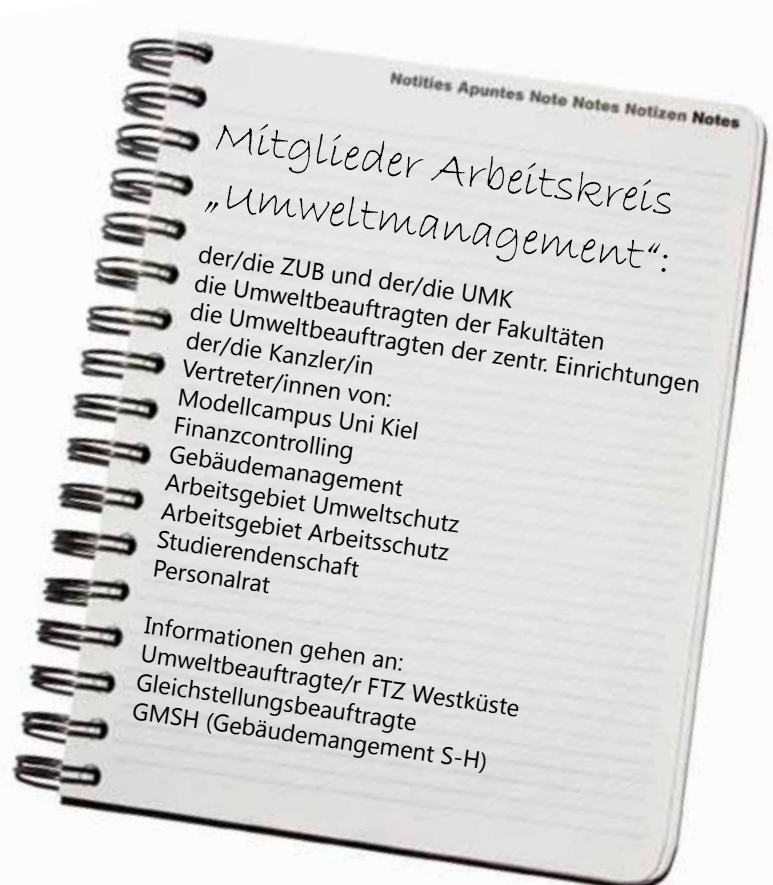 Notities Apuntes Note Notes Notizen Notes
Mitglieder Arbeitskreis
„Umweltmanagement“:
der/die ZUB und der/die UMK
die Umweltbeauftragten der Fakultäten
die Umweltbeauftragten der zentr. Einrichtungen
der/die Kanzler/in
Vertreter/innen von:
Modellcampus Uni Kiel
Finanzcontrolling
Gebäudemanagement
Arbeitsgebiet Umweltschutz
Arbeitsgebiet Arbeitsschutz
Studierendenschaft
Personalrat
Informationen gehen an:
Umweltbeauftragte/r FTZ Westküste
Gleichstellungsbeauftragte
GMSH (Gebäudemangement S-H)